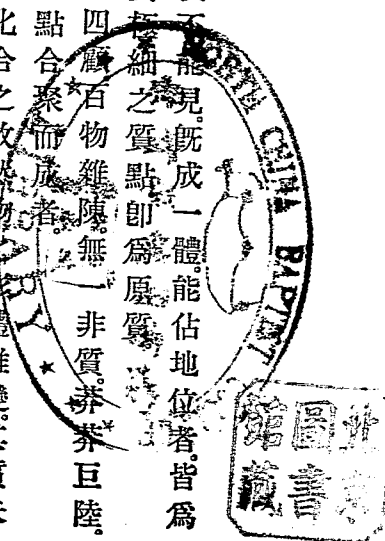 不能見。既成一體。能佔地位者。皆爲
極細之質點。卽爲原質
四顧百物雜陳。無一非質。莽莽巨陸。
點合聚而成者。
化合之故
體雖變。其質
NORTH CHINA BAPTIST
LIBRARY
北京
圖書
館藏